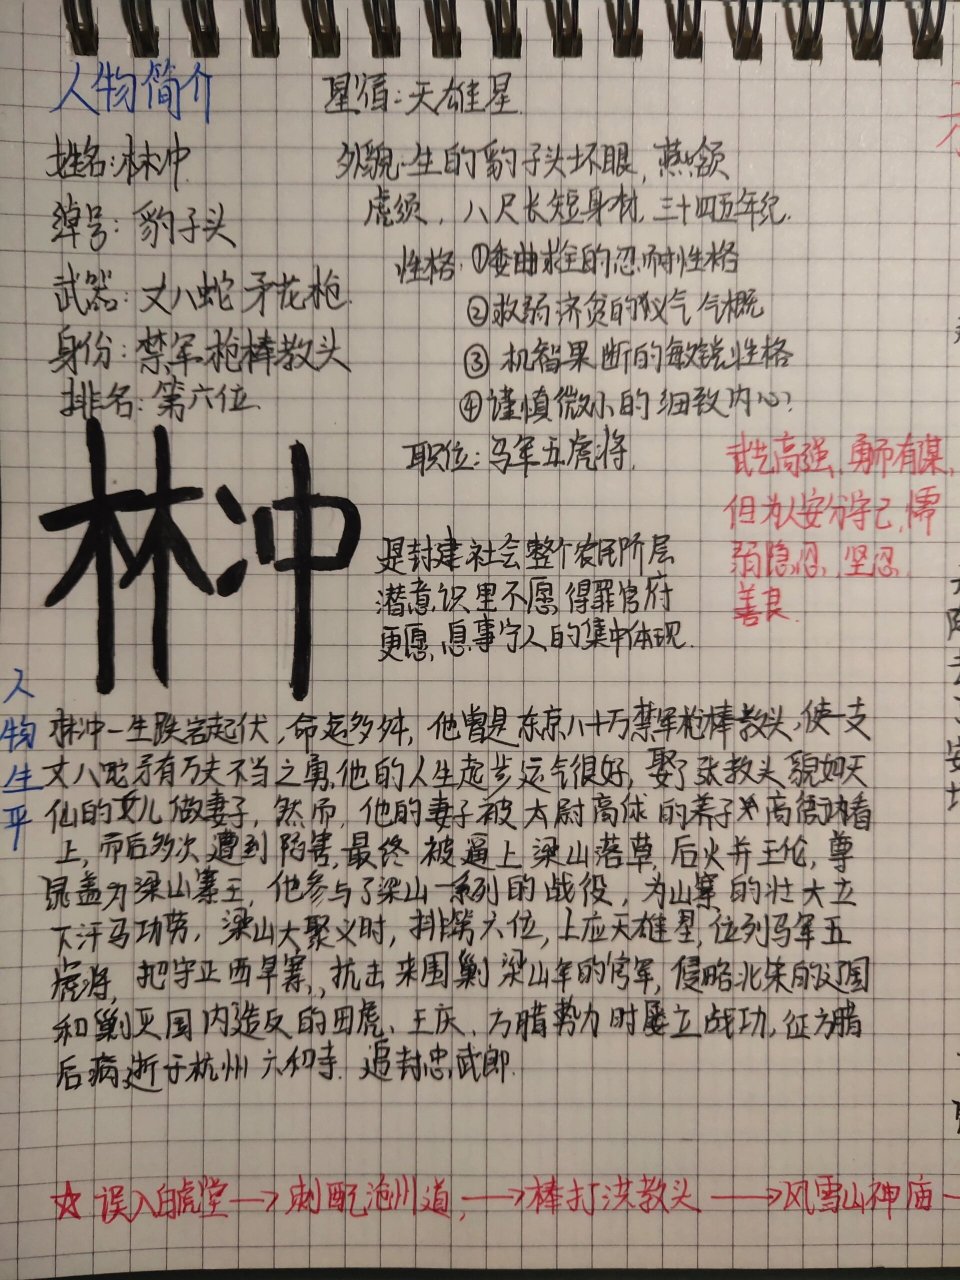 人物简介
星宿:天雄星
姓名:林冲
绰号:豹子头
武器:丈八蛇矛花枪
身份:禁军枪棒教头
排名:第六位
外貌:生的豹子头环眼,燕颔
虎须,八尺长短身材,三十四五年纪.
性格:①委曲求全的忍耐性格
②救弱济贫的义气气概
③机智果断的敏锐性格
④谨慎微小的细致内心?
职位:马军五虎将.
林冲
是封建社会整个农民阶层
潜意识里不愿得罪官府
更愿息事宁人的集中体现.
武艺高强,勇而有谋,
但为人安分守己,懦
弱隐忍,坚忍
善良.
人物生平
林冲一生跌宕起伏,命运多舛,他曾是东京八十万禁军枪棒教头,使一支
丈八蛇矛有万夫不当之勇.他的人生起步运气很好,娶了张教头貌如天
仙的女儿做妻子,然而,他的妻子被太尉高俅的养子高衙内看
上,而后多次遭到陷害,最终被逼上梁山落草,后火并王伦,尊
晁盖为梁山寨主,他参与了梁山一系列的战役,为山寨的壮大立
下汗马功劳,梁山大聚义时,排第六位,上应天雄星,位列马军五
虎将,把守正西旱寨,抗击来围剿梁山军的官军,侵略北宋的辽国
和剿灭国内造反的田虎、王庆、方腊势力时屡立战功,征方腊
后病逝于杭州六和寺.追封忠武郎.
☆误入白虎堂→刺配沧州道,→棒打洪教头→风雪山神庙